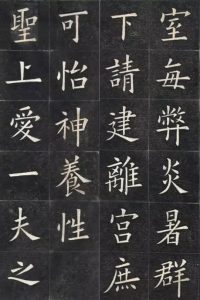 室每弊炎暑群
下請建離宫庶
可怡神養性
聖上愛一夫之